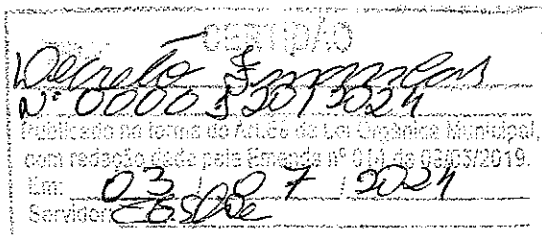 CERTIDÃO
Decreto Financeiro
Nº 0000320/2024
Publicado na forma do Art. 66 da Lei Orgânica Municipal,
com redação dada pela Emenda nº 014 de 03/2019.
Em: 03 / 07 / 2024
Servidor: